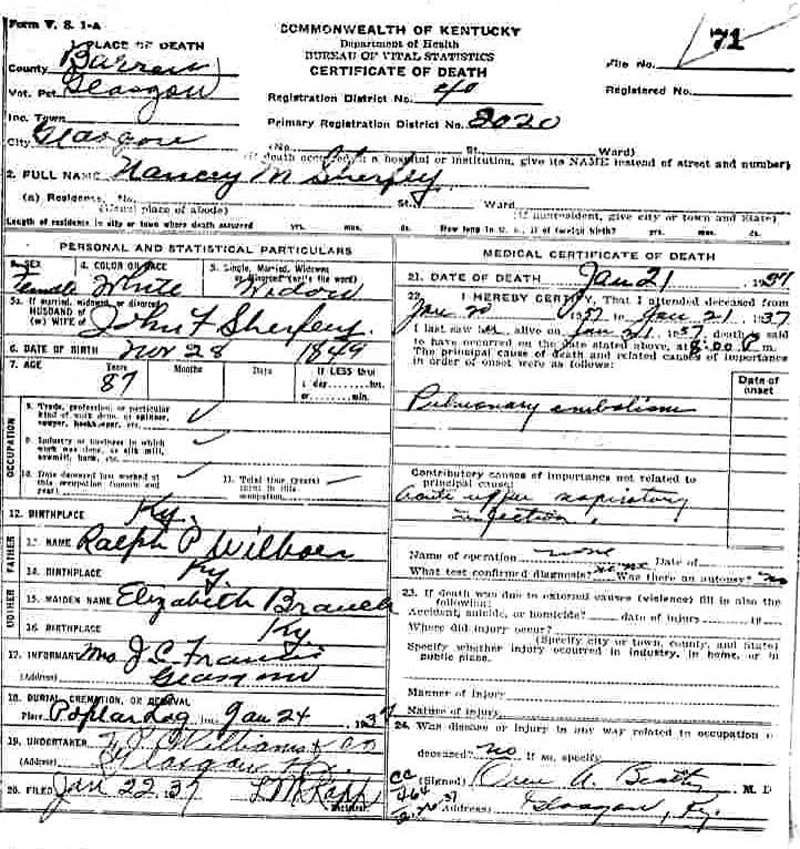 Form V. S. 1-A
COMMONWEALTH OF KENTUCKY
Department of Health
BUREAU OF VITAL STATISTICS
CERTIFICATE OF DEATH
71
File No.
Registered No.
1 PLACE OF DEATH
County Barren
Vot. Pct. Glasgow
Inc. Town
City Glasgow
Registration District No. 40
Primary Registration District No. 2020
(No. St. Ward)
(If death occurred in a hospital or institution, give its NAME instead of street and number)
2. FULL NAME Nancey M Sherfey
(a) Residence. No. St. Ward
(Usual place of abode) (If nonresident, give city or town and State)
Length of residence in city or town where death occurred yrs. mos. ds. How long in U. S., if of foreign birth? yrs. mos. ds.
PERSONAL AND STATISTICAL PARTICULARS
3. SEX 4. COLOR OR RACE 5. Single, Married, Widowed or Divorced (write the word)
Female White Widow
5a. If married, widowed, or divorced
HUSBAND of
(or) WIFE of John F Sherfey
6. DATE OF BIRTH Nov 28 1849
7. AGE Years Months Days If LESS than
87 1 day, hrs.
or min.
OCCUPATION
8. Trade, profession, or particular
kind of work done, as spinner,
sawyer, bookkeeper, etc.
9. Industry or business in which
work was done, as silk mill,
sawmill, bank, etc.
10. Date deceased last worked at
this occupation (month and
year)
11. Total time (years)
spent in this
occupation
12. BIRTHPLACE Ky.
FATHER
13. NAME Ralph P
14. BIRTHPLACE Ky
MOTHER
15. MAIDEN NAME Elizabeth Branch
16. BIRTHPLACE Ky
17. INFORMANT Mrs J. C. Francis
(Address) Glasgow
18. BURIAL, CREMATION, OR REMOVAL
Place Poplar Log Jan 24 1937
19. UNDERTAKER Williams & Co
(Address) Glasgow Ky.
20. FILED Jan 22 37
Registrar
MEDICAL CERTIFICATE OF DEATH
21. DATE OF DEATH Jan 21 1937
22. I HEREBY CERTIFY, That I attended deceased from
Jan 20 1937 to Jan 21, 1937
I last saw her alive on Jan 21, 1937, death is said
to have occurred on the date stated above, at 8:00 P m.
The principal cause of death and related causes of importance
in order of onset were as follows:
Date of
onset
Pulmonary embolism
Contributory causes of importance not related to
principal cause:
Acute upper respiratory
infection.
Name of operation none Date of
What test confirmed diagnosis? none Was there an autopsy? No
23. If death was due to external causes (violence) fill in also the
following:
Accident, suicide, or homicide? date of injury 19
Where did injury occur?
(Specify city or town, county, and State)
Specify whether injury occurred in industry, in home, or in
public place.
Manner of injury
Nature of injury
24. Was disease or injury in any way related to occupation of
deceased? No If so, specify
(Signed) Oren A. Beatty M. D
(Address) Glasgow, Ky.